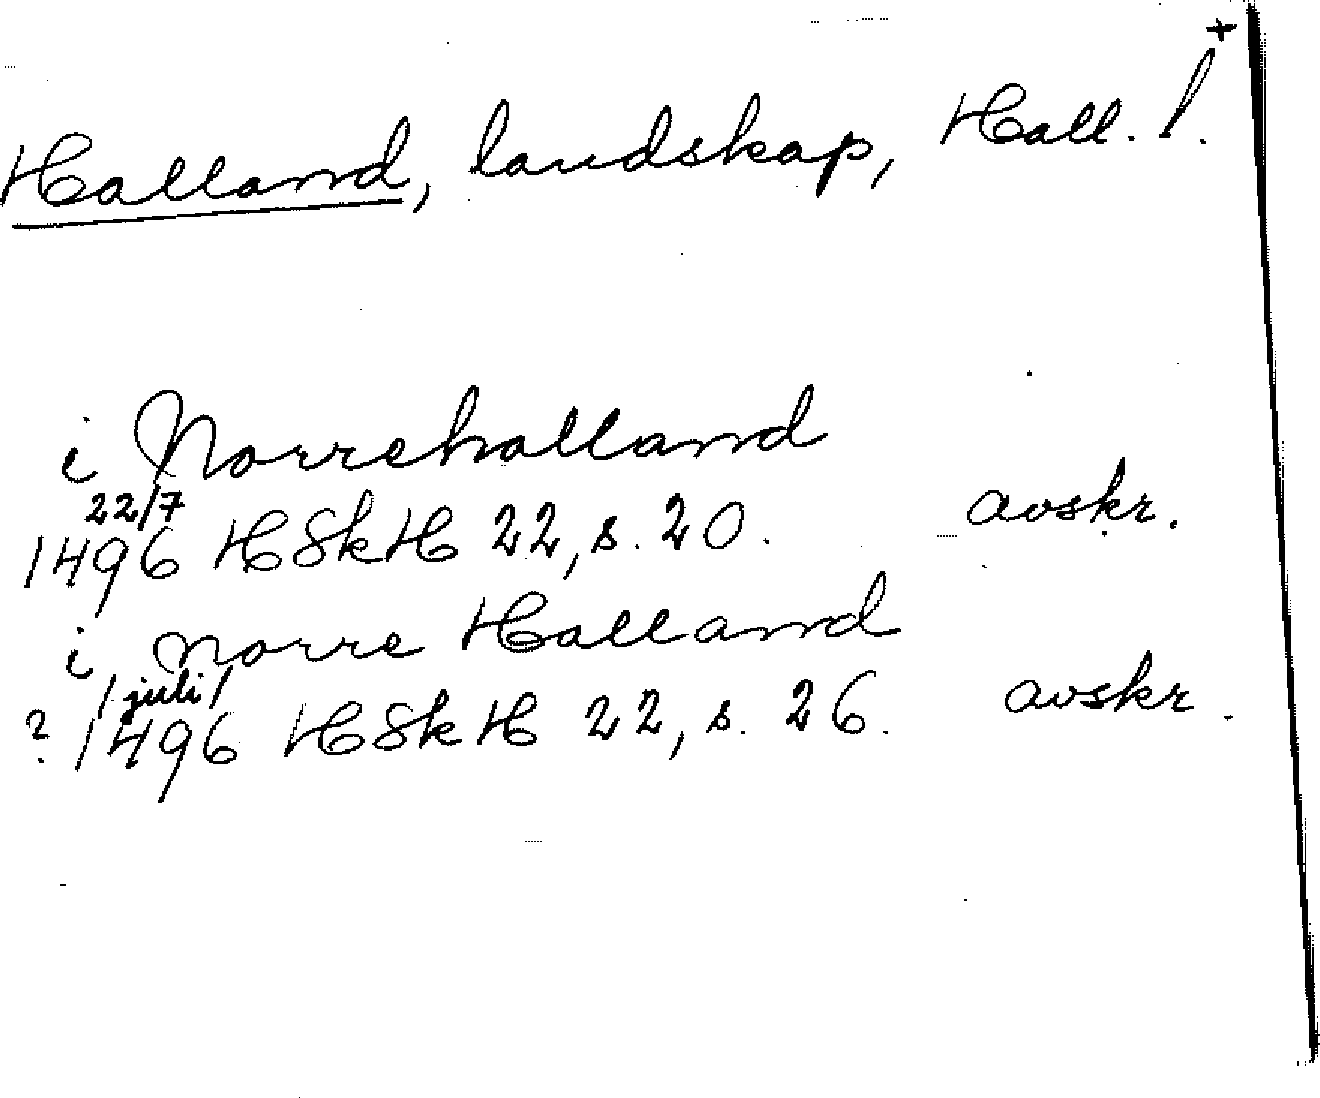 +
Halland, landskap, Hall. l.
i Norrehalland
22/7
1496 HSkH 22, s. 20. avskr.
i norre Halland
/juli/
? 1496 HSkH 22, s. 26. avskr.